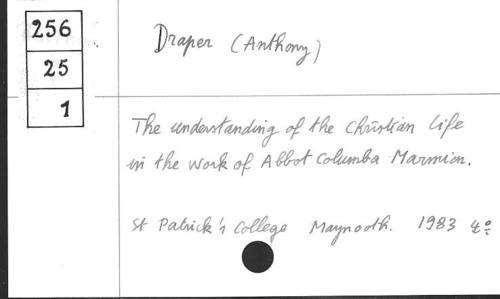 256
25
1
Draper (Anthony)
The understanding of the Christian life
in the work of Abbot Columba Marmion.
St Patrick's College Maynooth. 1983 4º